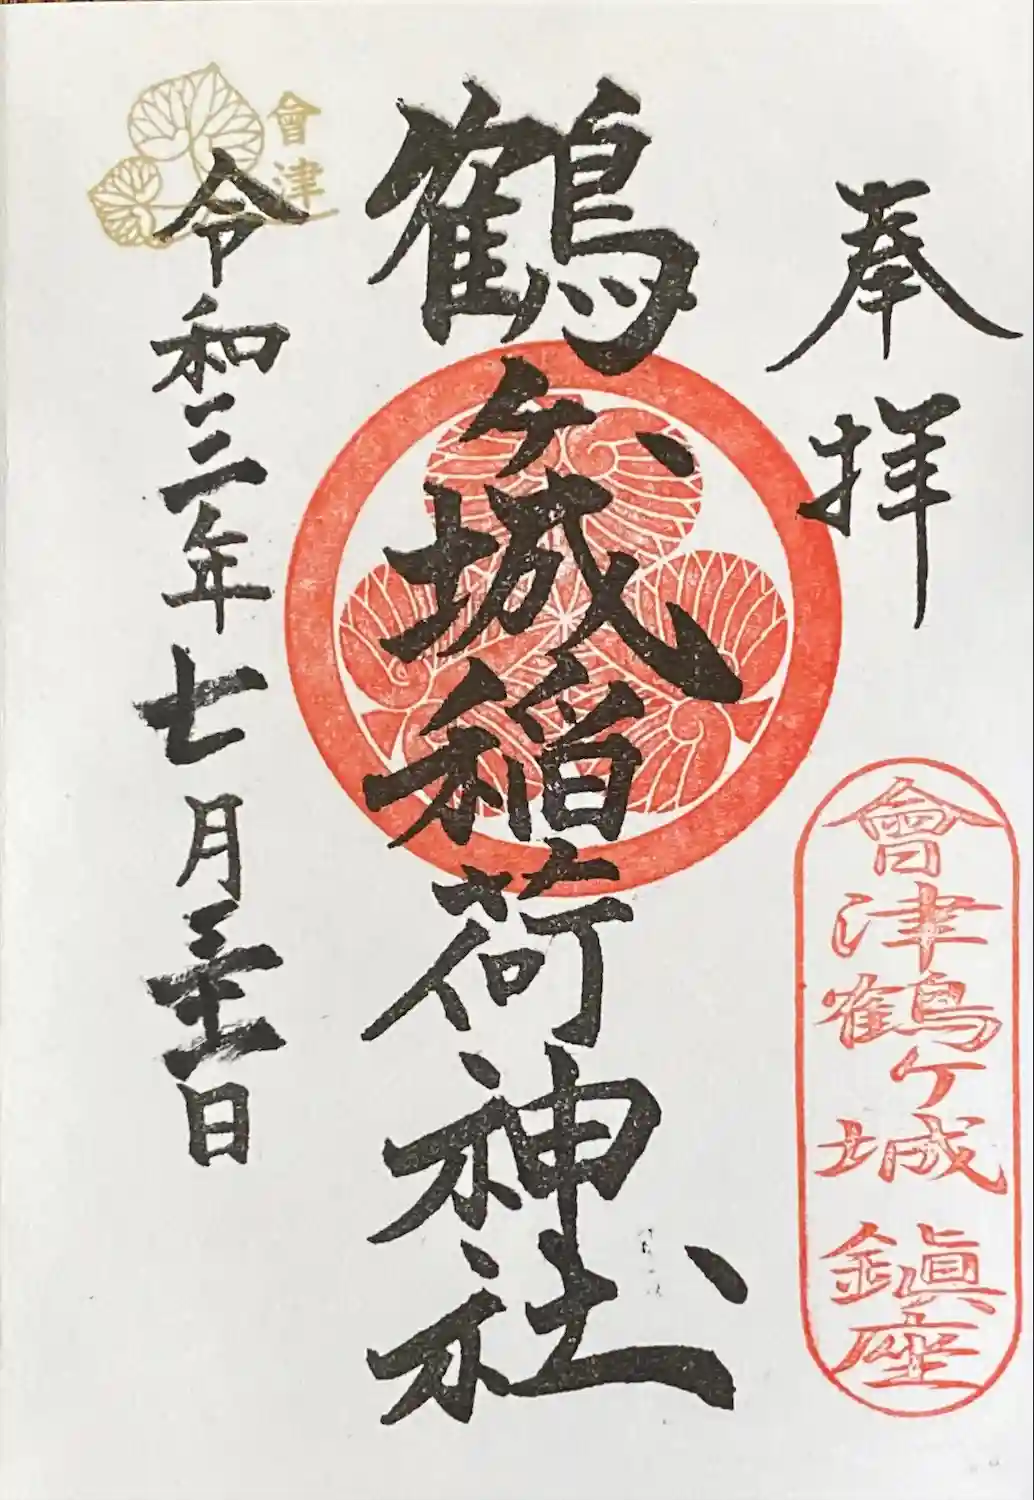 奉拝
會津鶴ケ城 鎭座
鶴ヶ城稲荷神社
會津
令和三年七月三十一日